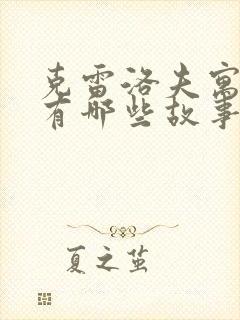 克雷洛夫寓
有哪些故事
夏之茧